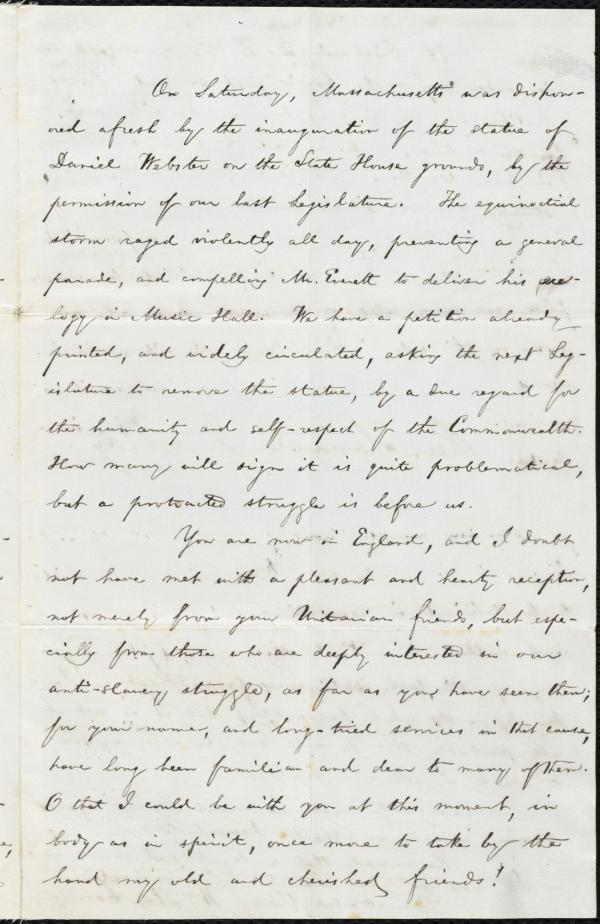 On Saturday, Massachusetts was dishon-
ored afresh by the inauguration of the statue of
Daniel Webster on the State House grounds, by the
permission of our last Legislature. The equinoctial
storm raged violently all day, preventing a general
parade, and compelling Mr. Everett to deliver his eu-
logy in Music Hall. We have a petition already
printed, and widely circulated, asking the next Leg-
islature to remove the statue, by a due regard for
the humanity and self-respect of the Commonwealth.
How many will sign it is quite problematical,
but a protracted struggle is before us.
You are now in England, and I doubt
not have met with a pleasant and hearty reception,
not merely from your Unitarian friends, but espe-
cially from those who are deeply interested in our
anti-slavery struggle, as far as you have seen them;
for your name, and long-tried services in that cause,
have long been familiar and dear to many of them.
O that I could be with you at this moment, in
body as in spirit, once more to take by the
hand my old and cherished friends!